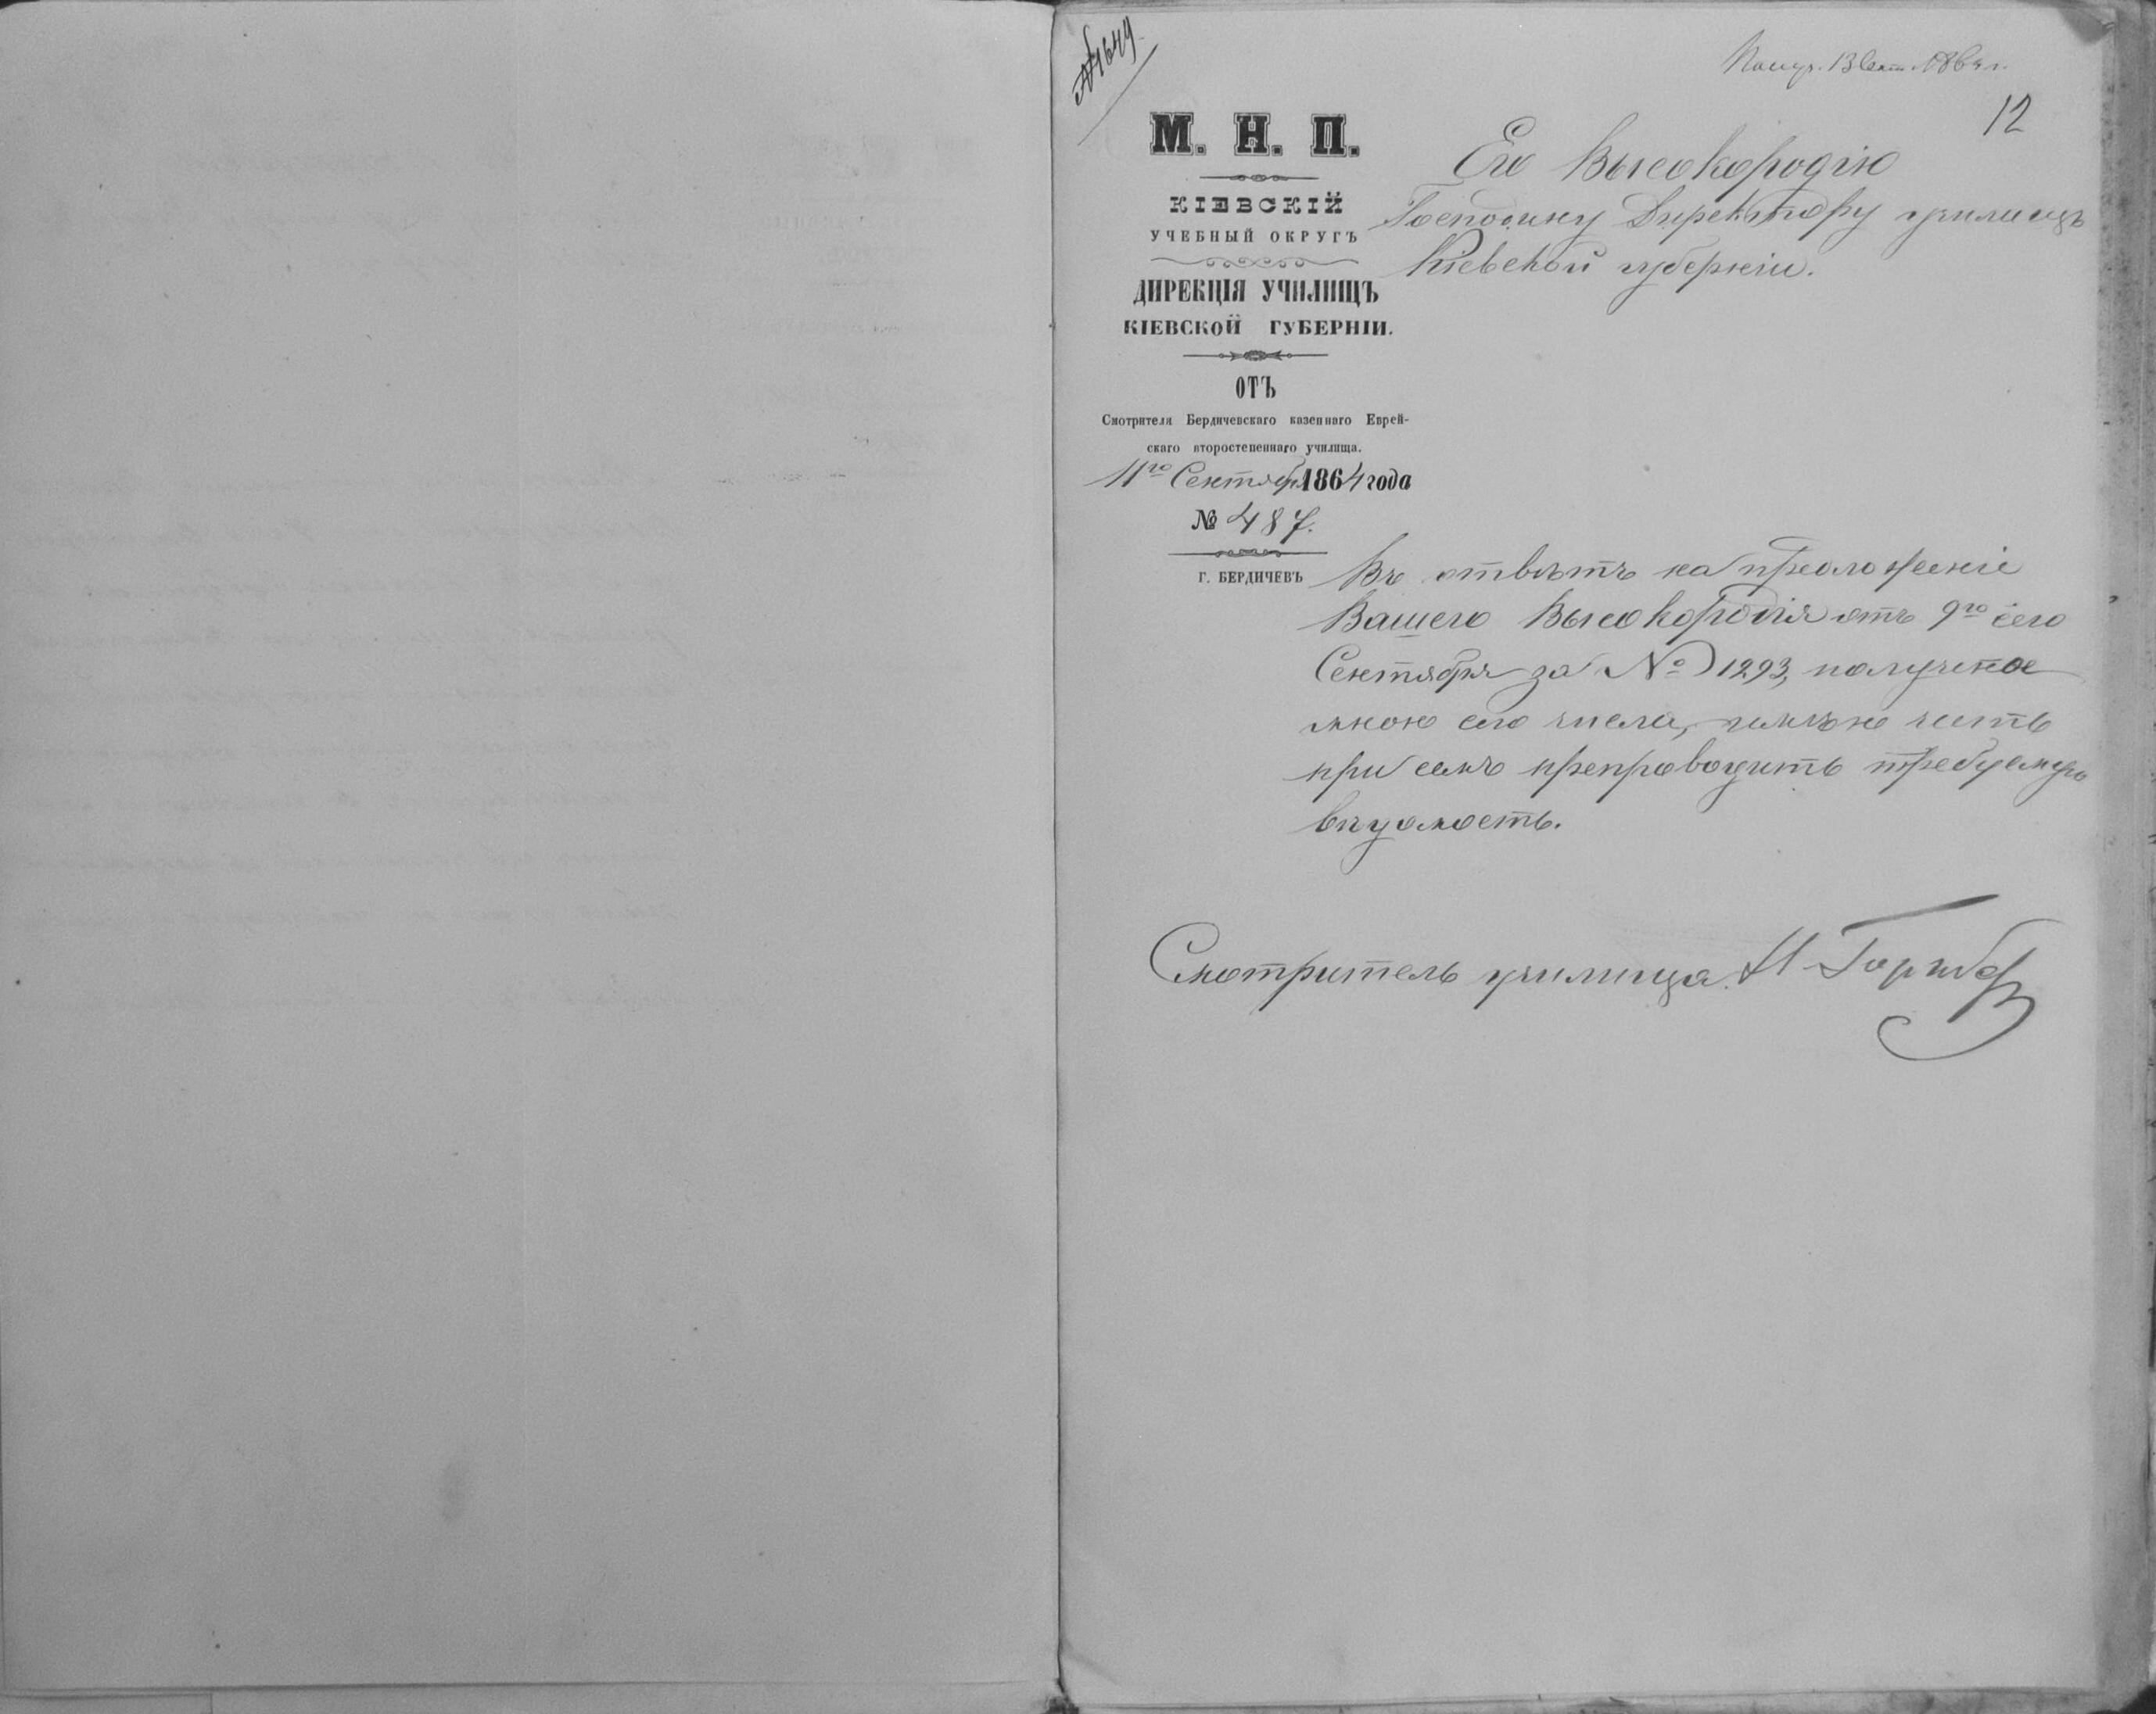 № 1649
Получ. 13 Сент. 1864 г.
12
М. Н. П.
КІЕВСКІЙ
УЧЕБНЫЙ ОКРУГЪ
ДИРЕКЦІЯ УЧИЛИЩЪ
КІЕВСКОЙ ГУБЕРНІИ.
ОТЪ
Смотрителя Бердичевскаго казеннаго Еврей-
скаго второстепеннаго училища.
11го Сентября 1864 года
№ 487.
Г. БЕРДИЧЕВЪ
Его Высокородію
Господину Директору училищъ
Кіевской губерніи.
Въ отвѣтъ на предложеніе
Вашего Высокородія отъ 9го сего
Сентября за № 1293, полученое
мною сего числа, имѣю честь
при семъ препроводить требуемую
вѣдомость.
Смотритель училища